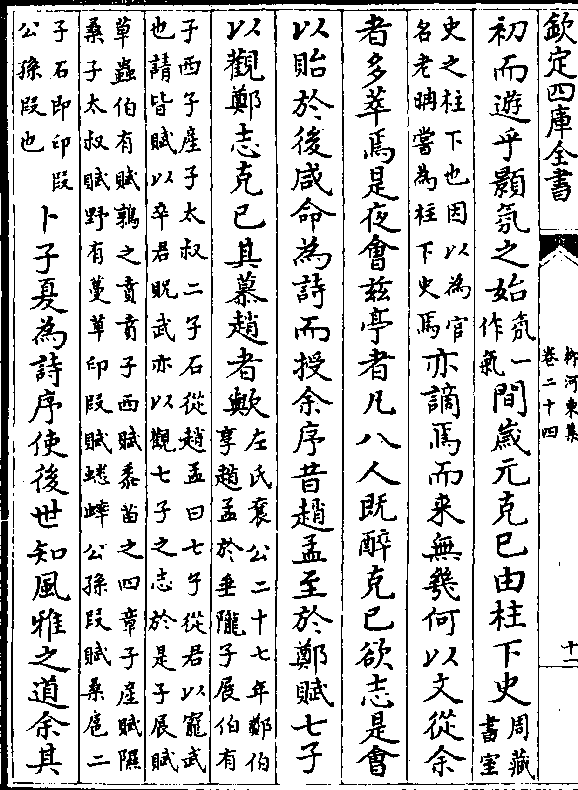 欽定四庫全書
柳河東集
卷二十四
十二
初而遊乎顥氛之始
氛一
作氣
間歲元克已由柱下史
周藏
書室
史之柱下也因以為官
名老聃嘗為柱下史焉
亦謫焉而来無幾何以文從余
者多萃焉是夜會兹亭者凡八人既醉克已欲志是會
以貽於後咸命為詩而授余序昔趙孟至於鄭賦七子
以觀鄭志克已其慕趙者歟
左氏襄公二十七年鄭伯
享趙孟於垂隴子展伯有
子西子産子太叔二子石從趙孟曰七子從君以寵武
也請皆賦以卒君貺武亦以觀七子之志於是子展賦
草蟲伯有賦鶉之賁賁子西賦黍苗之四章子産賦隰
桑子太叔賦野有蔓草印段賦蟋蟀公孫段賦桑扈二
子石即印段
公孫段也
卜子夏為詩序使後世知風雅之道余其